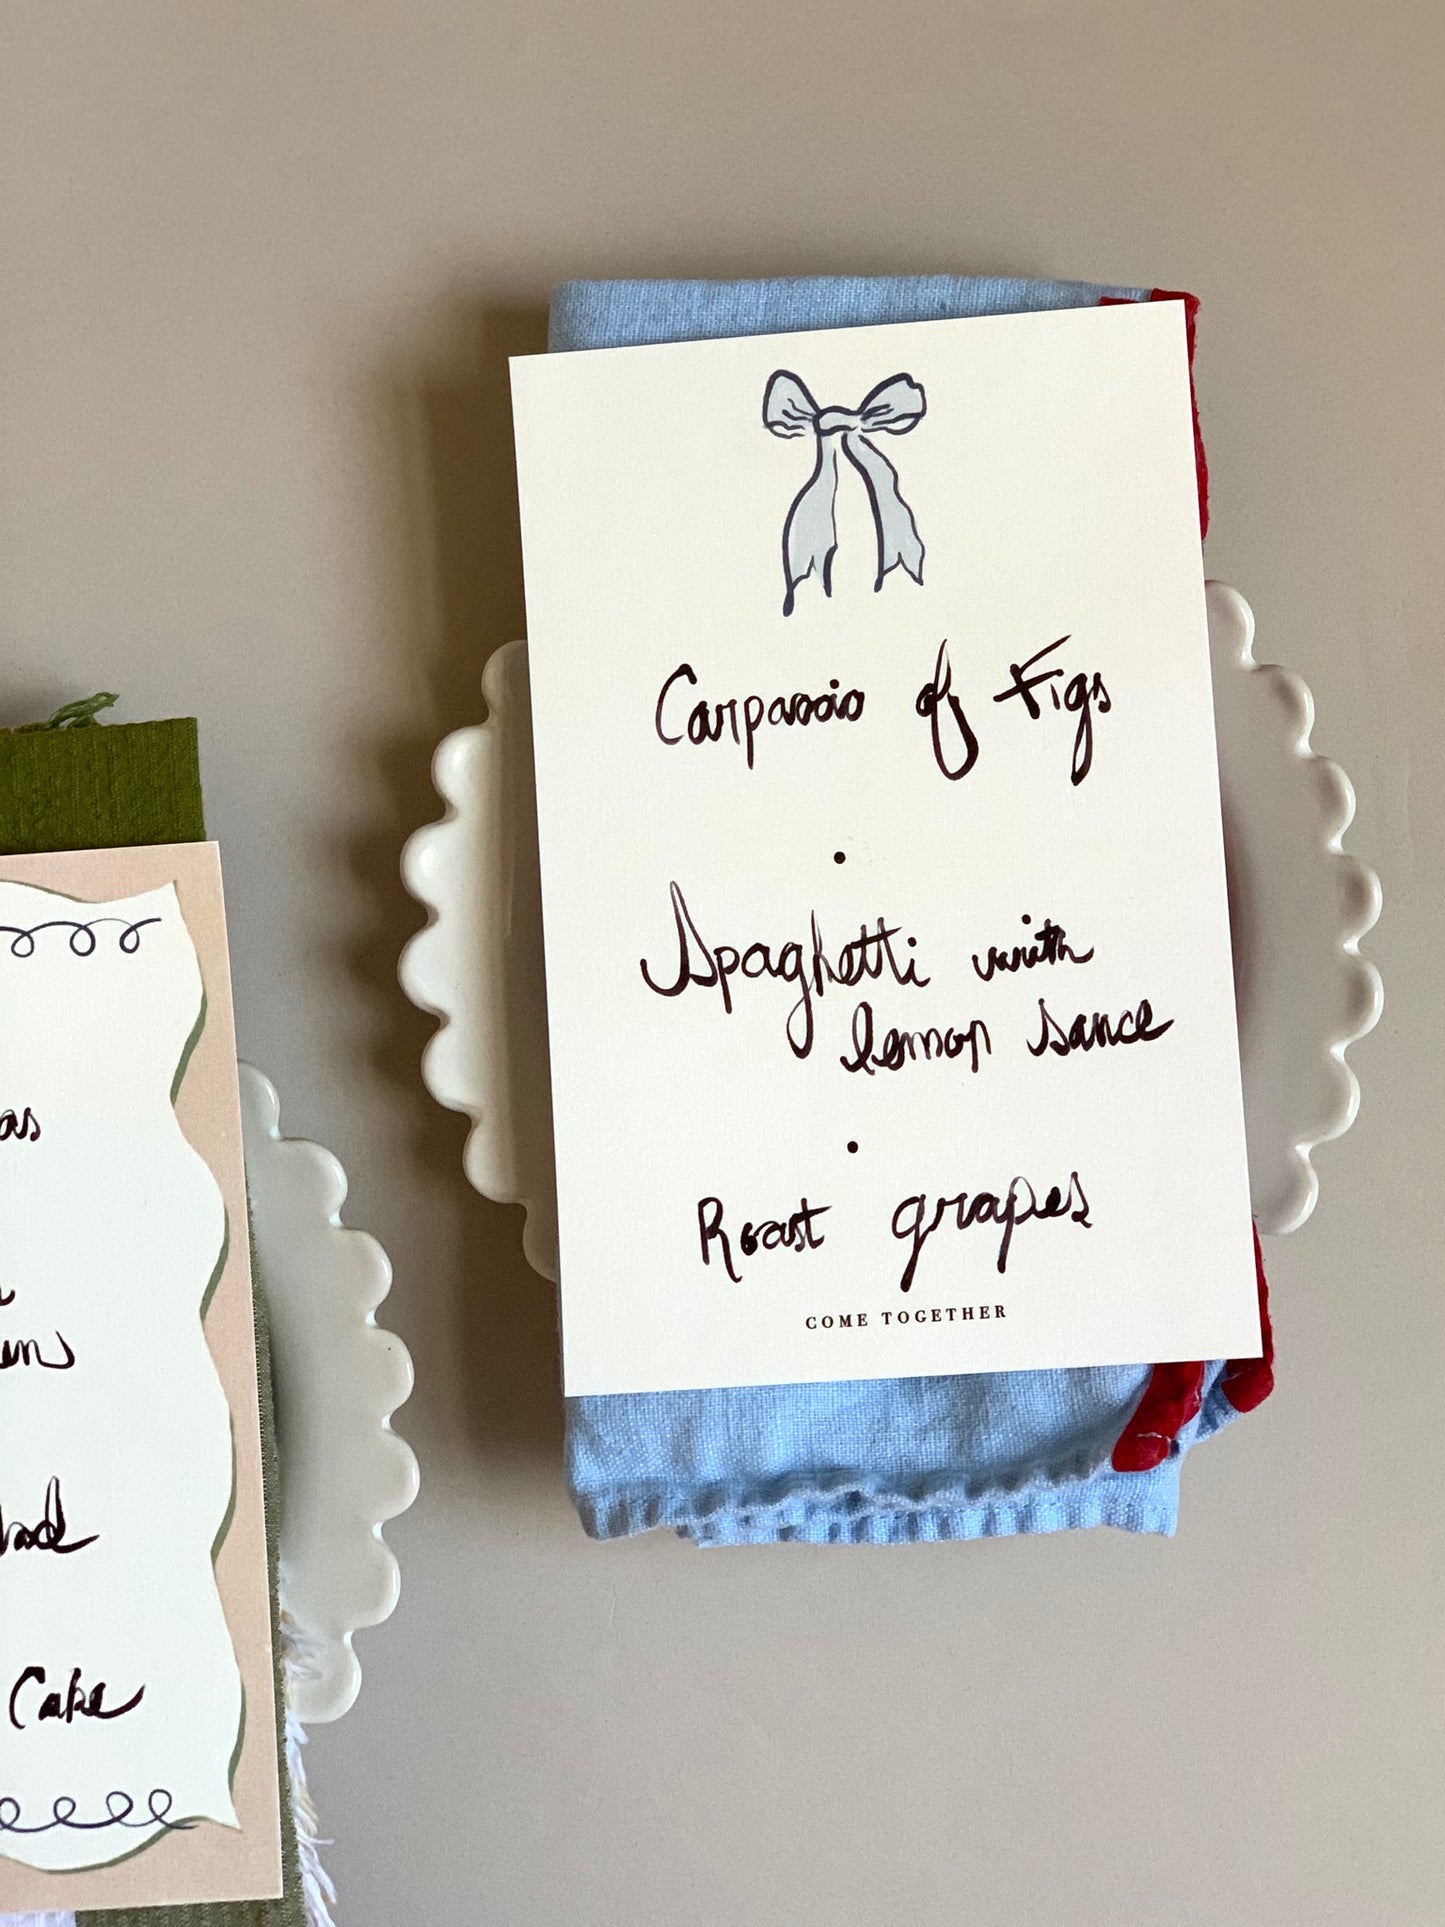 Carpaccio of Figs
Spaghetti with
lemon sauce
Roast grapes
COME TOGETHER
Cake